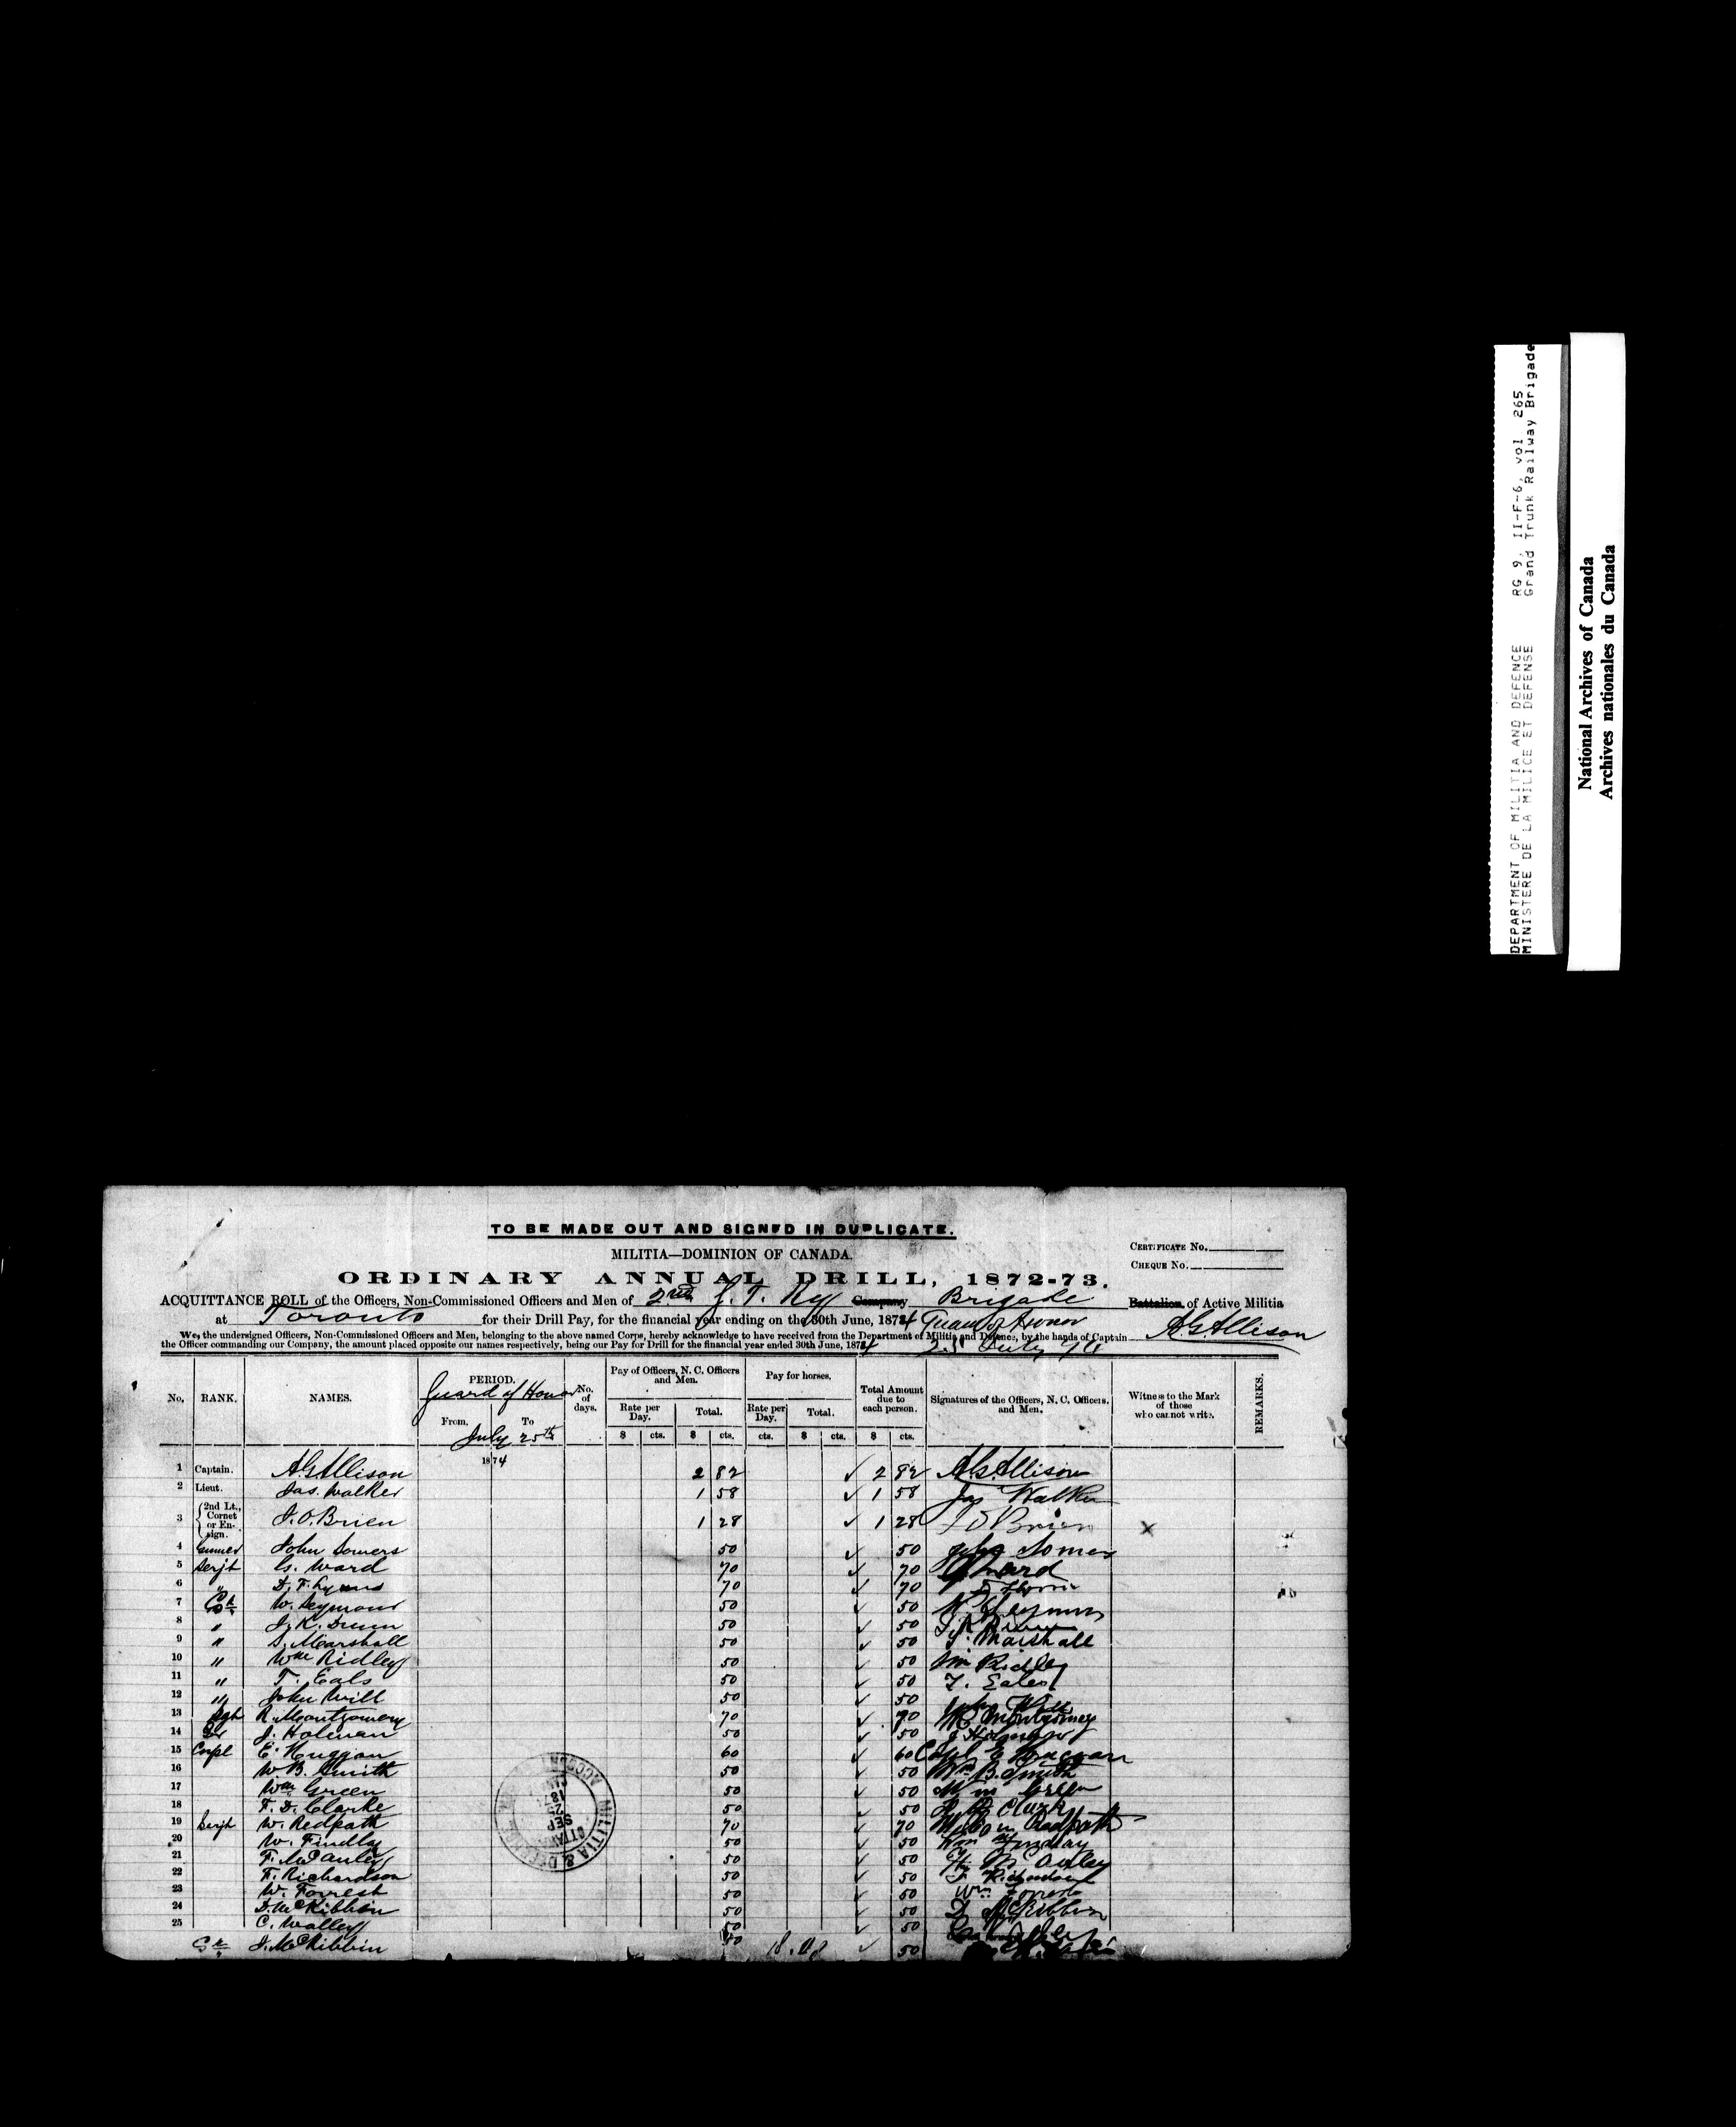 DEPARTMENT OF MILITIA AND DEFENCE RG 9, II-F-6, vol 265
MINISTERE DE LA MILICE ET DEFENSE Grand Trunk Railway Brigade
National Archives of Canada
Archives nationales du Canada
TO BE MADE OUT AND SIGNED IN DUPLICATE.
MILITIA—DOMINION OF CANADA.
CERTIFICATE No.
CHEQUE No.
ORDINARY ANNUAL DRILL, 1872-73.
ACQUITTANCE ROLL of the Officers, Non-Commissioned Officers and Men of 2nd G. T. Ry Company Brigade Battalion of Active Militia
at Toronto for their Drill Pay, for the financial year ending on the 30th June, 1874 Guard of Honor
We, the undersigned Officers, Non-Commissioned Officers and Men, belonging to the above named Corps, hereby acknowledge to have received from the Department of Militia and Defence, by the hands of Captain A G Allison
the Officer commanding our Company, the amount placed opposite our names respectively, being our Pay for Drill for the financial year ended 30th June, 1874 25 July 74
No. RANK. NAMES. PERIOD. Guard of Honor From, To July 25th 1874 No. of days. Pay of Officers, N. C. Officers and Men. Rate per Day. $ cts. Total. $ cts. Pay for horses. Rate per Day. cts. Total. $ cts. Total Amount due to each person. $ cts. Signatures of the Officers, N. C. Officers, and Men. Witness to the Mark of those who cannot write. REMARKS.
1 Captain. A G Allison 2 82 ✓ 2 82 A. G. Allison
2 Lieut. Jas. Walker 1 58 ✓ 1 58 Jas Walker
3 2nd Lt., Cornet or Ensign. J. O. Brien 1 28 ✓ 1 28 J O Brien x
4 Gunner John Somers 50 ✓ 50 John Somers
5 Serjt G. Ward 70 ✓ 70 G Ward
6 " D. F. 70 ✓ 70
7 Gr W. Seymour 50 ✓ 50 W Seymour
8 " J. K. Dunn 50 ✓ 50 J K Dunn
9 " S. Marshall 50 ✓ 50 S. Marshall
10 " Wm Ridley 50 ✓ 50 Wm Ridley
11 " T. Eals 50 ✓ 50 T. Eales
12 " John Will 50 ✓ 50 John Will
13 Sgt R. Montgomery 70 ✓ 70 R Montgomery
14 Gr J. Holman 50 ✓ 50 J Holman
15 Corpl E. Huggan 60 ✓ 60 Corpl E Huggan
16 W B. Smith 50 ✓ 50 Wm B. Smith
17 Wm Green 50 ✓ 50 Wm Green
18 F. D. Clarke 50 ✓ 50 F D Clark
19 Serjt W. Redpath 70 ✓ 70 Redpath
20 W. Findlay 50 ✓ 50 Wm Findlay
21 F. McAuley 50 ✓ 50 McAuley
22 F. Richardson 50 ✓ 50 F Richardson
23 W. Forrest 50 ✓ 50 Wm Forrest
24 D. McKibbin 50 ✓ 50 D McKibbin
25 C. Walley 50 ✓ 50
Gr J. McKibbin 50 18.08 ✓ 50
MILITIA & DEFENCE
OTTAWA
SEP